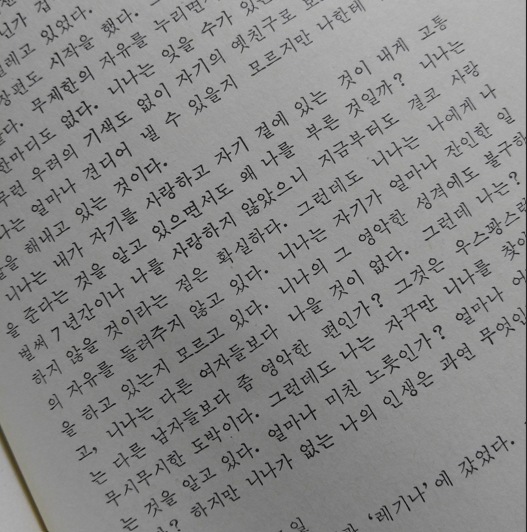 넌가 집
걸레고 있었다.
장편도 시작을 했다. 그
무제한의 자유를 누리면
한마디도 없다. 니나는 잊을 수가 있는
우려의 기색도 없이 자기의 옛친구로
나는 얼마나 견디어 낼 수 있을지 모르지만 나한테
을 해내고 있는 것이다.
니나는 내가 자기를 사랑하고 자기 곁에 있는 것이 내게 고통
을 준다는 것을 알고 있으면서도 왜 나를 부른 것일까? 니나는
벌써 7년간이나 나를 사랑하지 않았으니 지금부터도 결코 사랑
하지 않을 것이라는 점은 확실하다. 그런데도 니나는 나에게 나
의 자유를 돌려주지 않고 있다. 니나는 자기가 얼마나 잔인한 일
을 하고 있는지 모르고 있다. 니나의 그 영악한 성격에도 불구하
고, 니나는 다른 여자들보다 나을 것이 없다. 그런데 나는?
는 다른 남자들보다 좀 영악한 편인가? 그것은 우스꽝스럽
무시무시한 도박이다. 그런데도 나는 자꾸만 니나를 찾
는 것을 알고 있다. 얼마나 미친 노릇인가? 얼마나 어
? 하지만 니나가 없는 나의 인생은 과연 무엇인
일
‘레기나’에 갔었다.